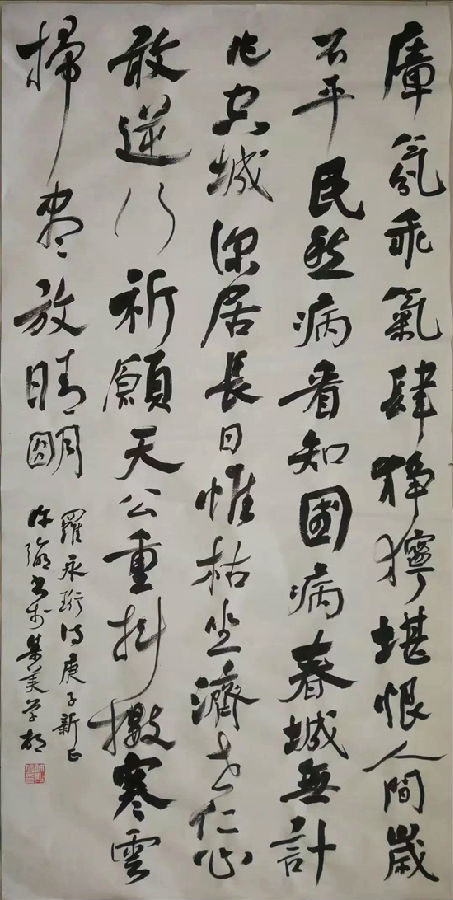 瘴氛乖氣肆狰獰堪恨人間歲
不平民愁病看知國病春城無計
化空城深居長日惟枯坐濟世仁心
敢逆行祈願天公重抖擻寒雲
掃盡放晴明
羅永珩詩庚子新正
書於集美学村